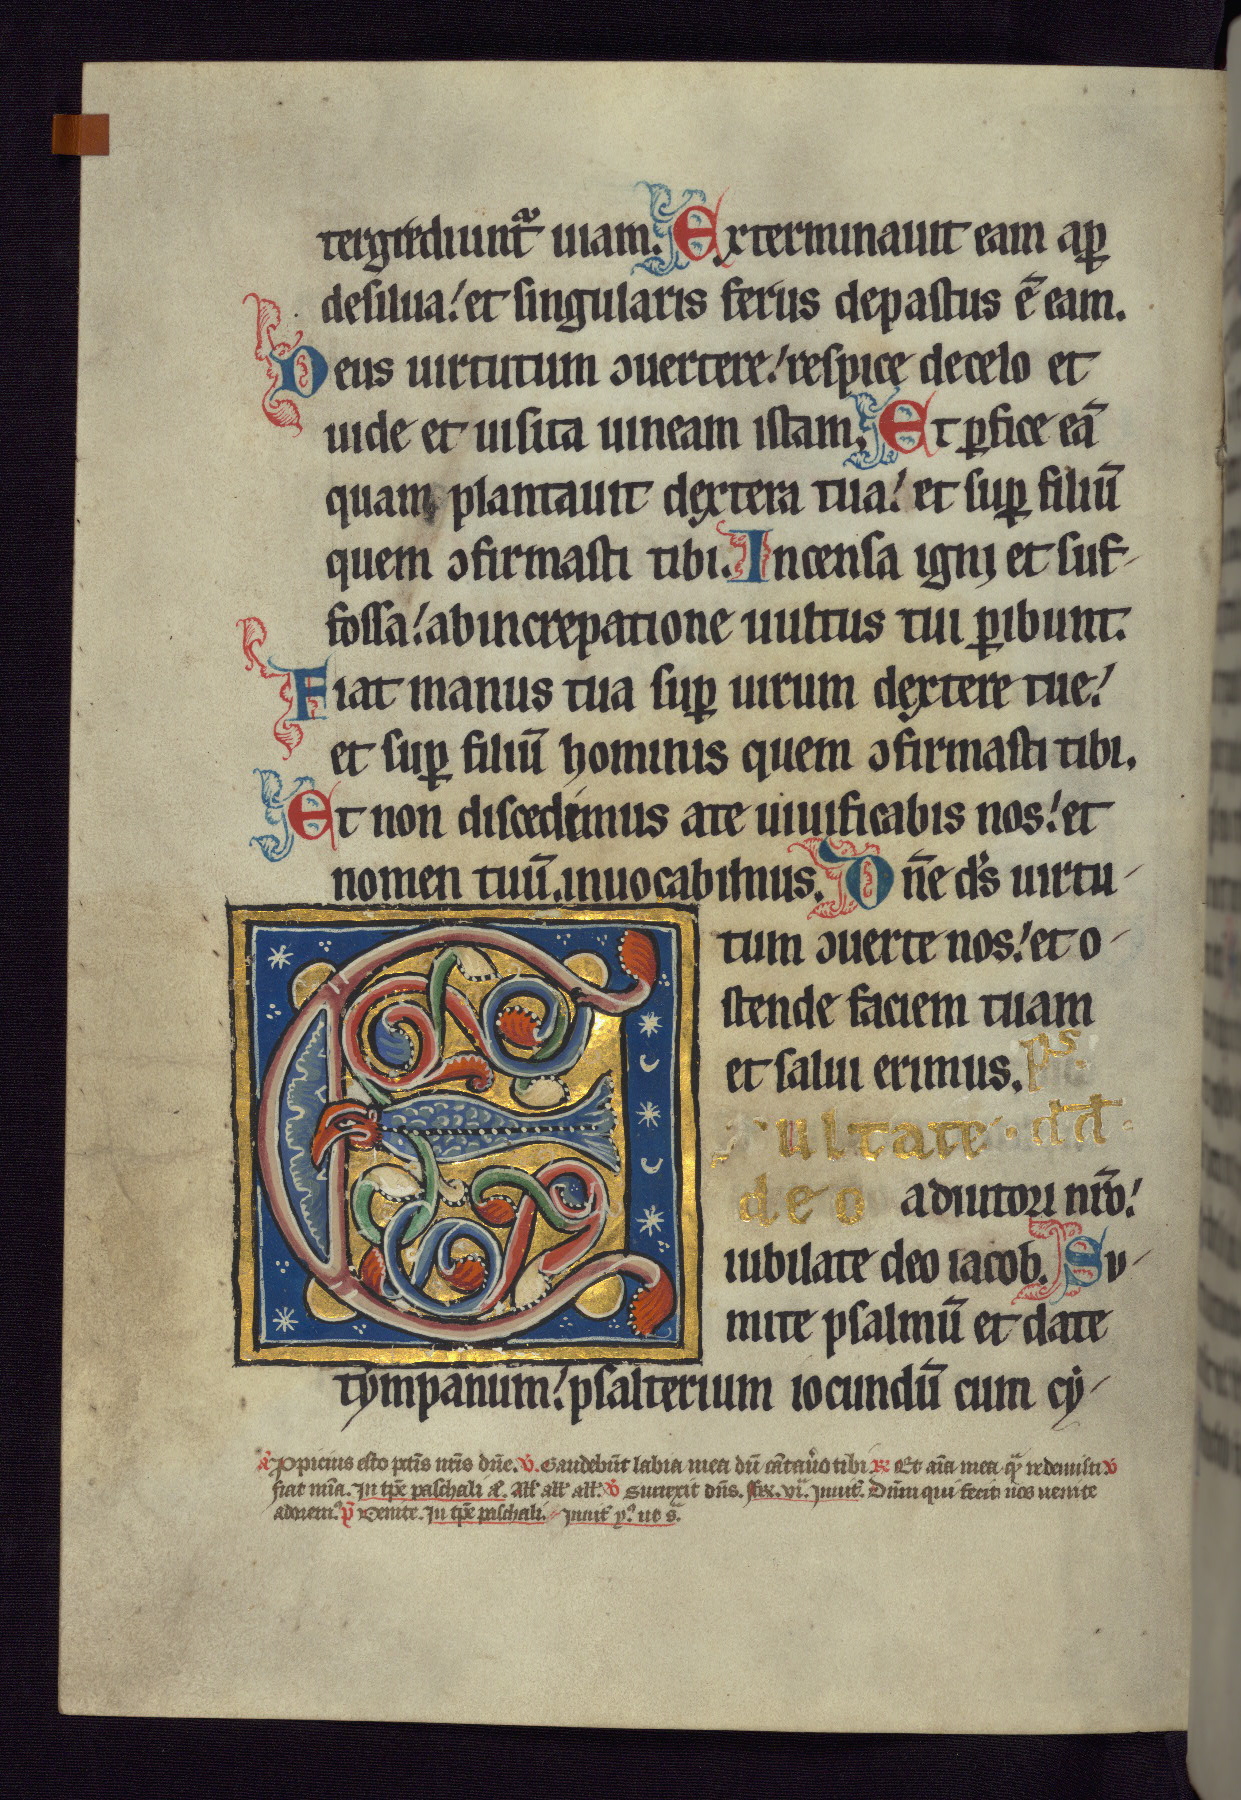 tergrediunt᷑ uiam. Exterminauit eam aꝑ
desilua! et singularis ferus depastus ē eam.
Deus uirtutum ↄuertere! respice decelo et
uide et uisita uineam istam. Et ꝑfice eā
quam plantauit dextera tua! et suꝑ filiū
quem ↄfirmasti tibi. Incensa igni et suf-
fossa! abincrepatione uultus tui ꝑibunt.
Fiat manus tua suꝑ uirum dextere tue!
et suꝑ filiū hominis quem ↄfirmasti tibi.
Et non discedimus ate uiuificabis nos! et
nomen tuū inuocabimus. Dn̄e ds̄ uirtu-
tum ↄuerte nos! et o-
stende faciem tuam
et salui erimus. ps.
E
ultate. dd̄.
deo adiutori nr̄o!
iubilate deo iacob. Su-
mite psalmū et date
tympanum! psalterium iocundū cum cy-
Ꝓpicius esto pctīs nrīs dn̄e. v̄. Gaudebūt labia mea dū cātau̾o tibi ꝶ Et aīa mea qᷓ redemisti v̄
fiat mīa. In tp̄e paschali Aͤ. All᷑ all᷑ all᷑. v̄ Surrexit dn̄s. Inuit᷑. Dn̄m qui fecit nos uenite
adorem᷒. p̄ Venite. In tp̄e paschali.